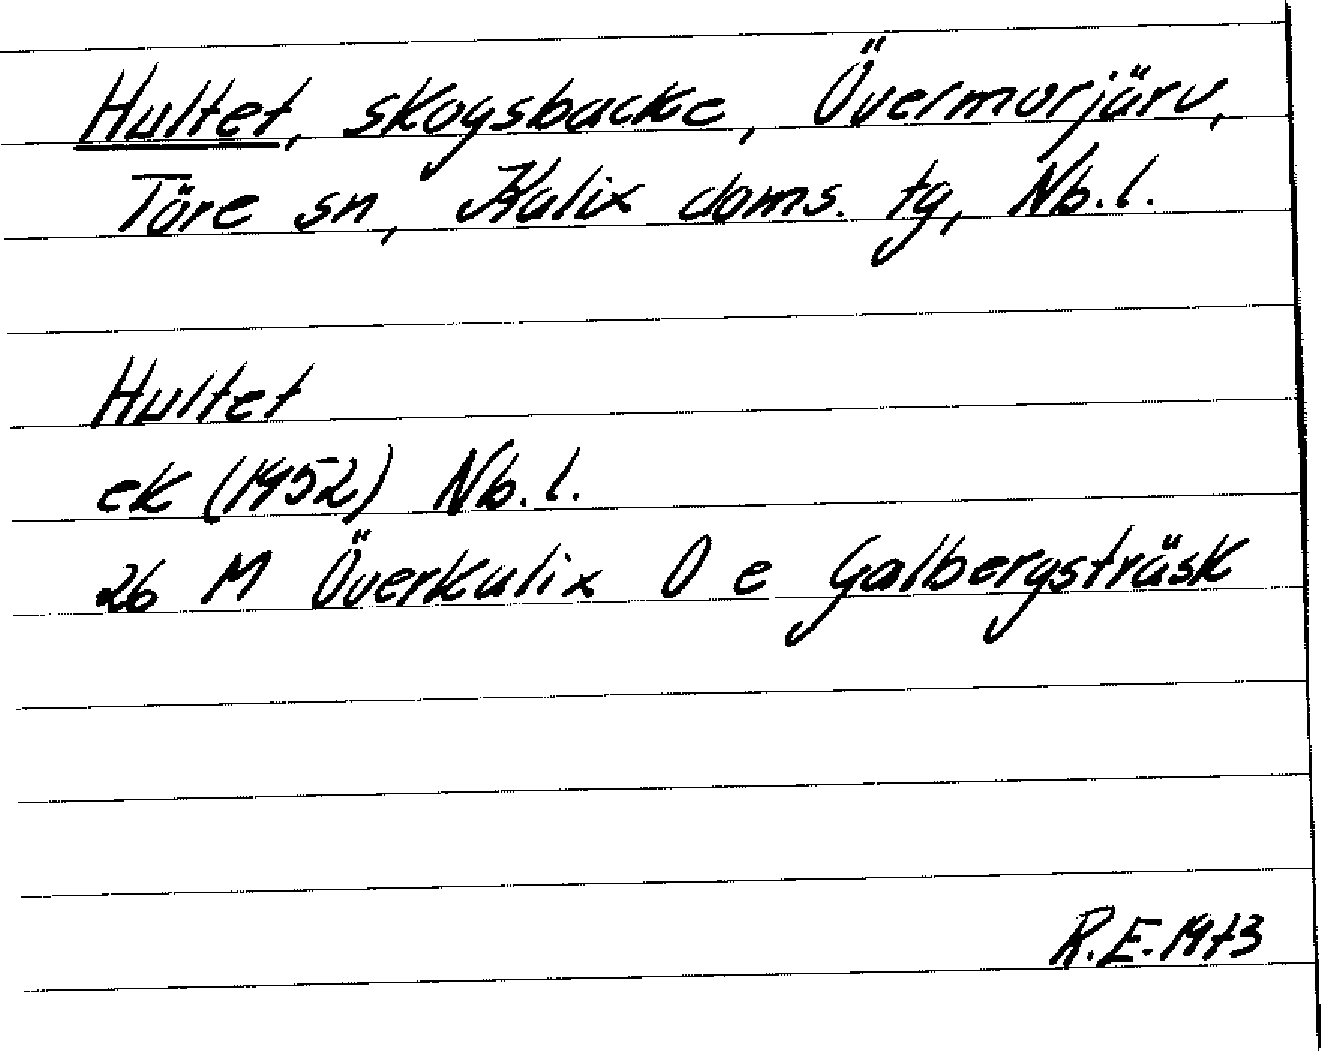 Hultet, skogsbacke, Övermorjärv,
Töre sn, Kalix doms. tg, Nb.l.
Hultet
ek (1952) Nb.l.
26 M Överkalix O e Galbergsträsk
R.E. 1973